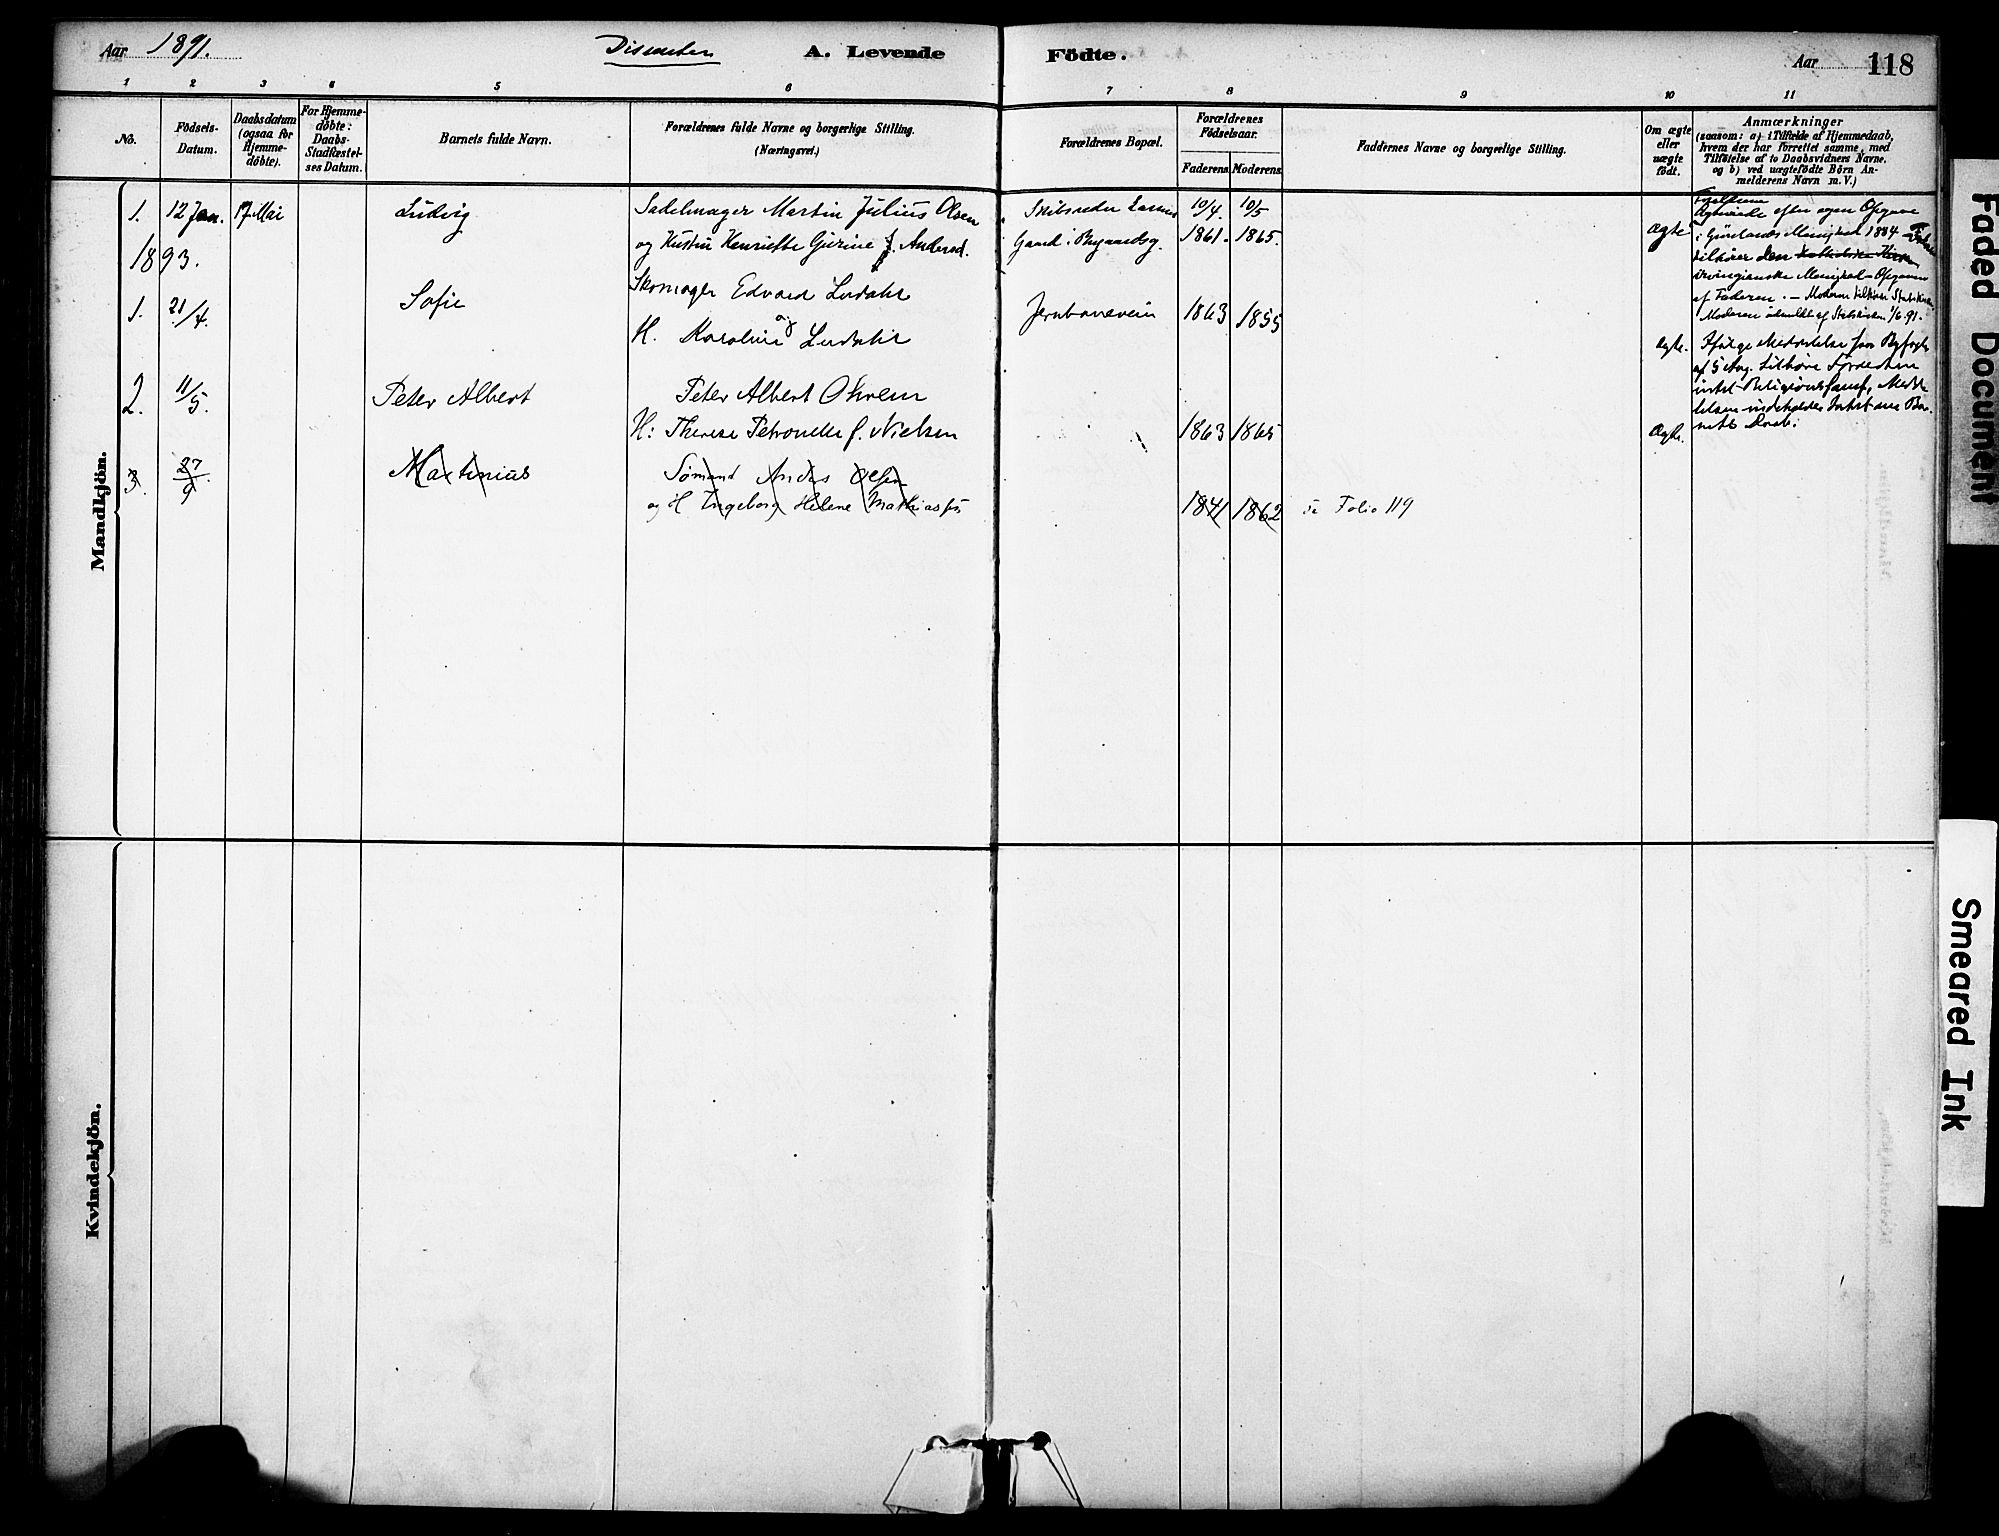 Aar 1891.
Dissenter
A. Levende Födte.
Aar
118
1 2 3 4 5 6 7 8 9 10 11
No.
Födsels-
Datum.
Daabsdatum
(ogsaa for
Hjemme-
döbte).
For Hjemme-
döbte:
Daabs-
Stadfæstel-
ses Datum.
Barnets fulde Navn.
Forældrenes fulde Navne og borgerlige Stilling.
(Næringsvei.)
Forældrenes Bopæl.
Forældrenes
Födselsaar.
Faderens Moderens
Faddernes Navne og borgerlige Stilling.
Om ægte
eller
uægte
födt.
Anmærkninger
(saasom: a) i Tilfælde af Hjemmedaab,
hvem der har forrettet samme, med
Tilföielse af to Daabsvidners Navne.
og b) ved uægtefödte Börn An-
melderens Navn m. V.)
Mandkjön.
1. 12 Jan. 17 Mai Ludvig Sadelmager Martin Julius Olsen
og Hustru Henriette Gurine f. Andersd.
Skibsreder
Gaard i
10/4. 1861. 10/5 1865.
ægte
Forældrene
efter egen Opgave
i Menighed 1884
tilhører den
irvingianske Menighed Opgaven
af Faderen. – Moderen tilhører Statskirken
Moderen udmeldt af Statskirken 1/6 91.
1893.
1. 21/4. Sofie Skomager Edvard Lerdahl
og
H. Karoline Lerdahl
Jernbaneveien 1863 1855
ægte.
Ifølge Meddelelse fra Byfogden
af 5 Aug. tilhøre Forældrene
intet Religionssamf.
2. 11/5. Peter Albert Peter Albert
H: Therese Petronelle f. Nielsen
1863 1865
ægte.
3. 27/9 Martinius Sømand Anders Olsen
og H Ingeborg Helene Mathiasen
1841 1862 se Folio 119
Kvindekjön.
Faded Document
Smeared Ink